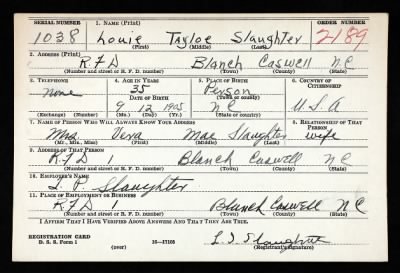 SERIAL NUMBER 1. NAME (Print) ORDER NUMBER
1038 Louie Tayloe Slaughter 2189
(First) (Middle) (Last)
2. ADDRESS (Print)
RFD Blanch Caswell NC
(Number and street or R. F. D. number) (Town) (County) (State)
3. TELEPHONE 4. AGE IN YEARS 5. PLACE OF BIRTH 6. COUNTRY OF CITIZENSHIP
none 35 Person
DATE OF BIRTH (Town or county)
9 12 1905 NC U.S.A
(Exchange) (Number) (Mo.) (Day) (Yr.) (State or country)
7. NAME OF PERSON WHO WILL ALWAYS KNOW YOUR ADDRESS 8. RELATIONSHIP OF THAT PERSON
Mrs. Vera Mae Slaughter wife
(Mr., Mrs., Miss) (First) (Middle) (Last)
9. ADDRESS OF THAT PERSON
RFD 1 Blanch Caswell NC
(Number and street or R. F. D. number) (Town) (County) (State)
10. EMPLOYER'S NAME
Slaughter
11. PLACE OF EMPLOYMENT OR BUSINESS
RFD 1 Blanch Caswell NC
(Number and street or R. F. D. number) (Town) (County) (State)
I AFFIRM THAT I HAVE VERIFIED ABOVE ANSWERS AND THAT THEY ARE TRUE.
REGISTRATION CARD
D. S. S. Form 1 (over) 16—17105 L. T. Slaughter
(Registrant's signature)